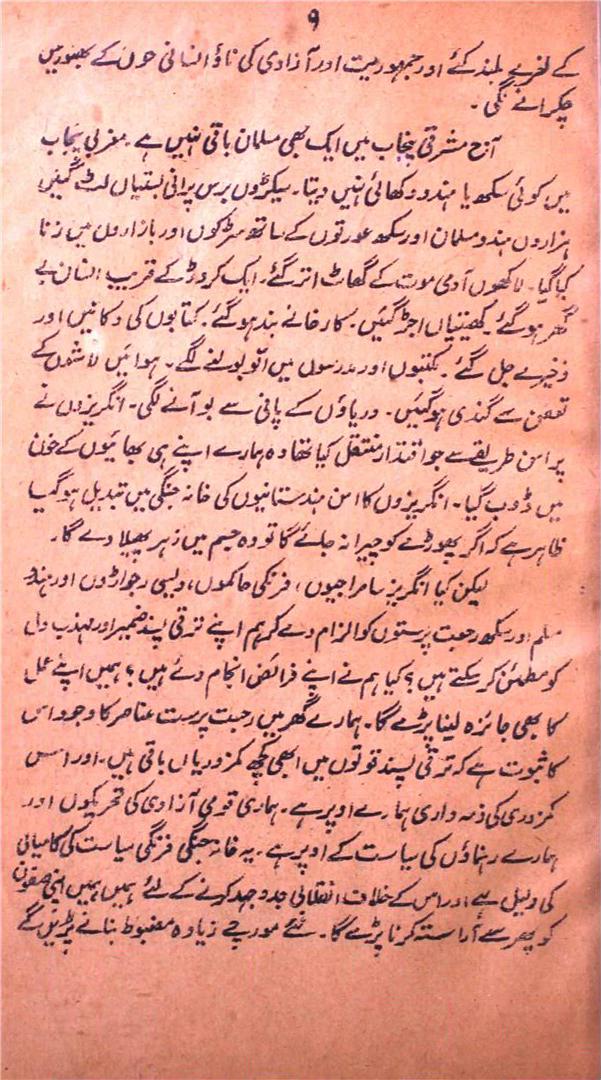 ۹
کے نعرے بلند کئے اور جمہوریت اور آزادی کی ناؤ انسانی خون کے بھنور میں
چکرانے لگی ۔
آج مشرقی پنجاب میں ایک بھی مسلمان باقی نہیں ہے ۔ مغربی پنجاب
میں کوئی سکھ یا ہندو دکھائی نہیں دیتا ۔ سیکڑوں برس پرانی بستیاں لٹ گئیں
ہزاروں ہندو مسلمان اور سکھ عورتوں کے ساتھ سڑکوں اور بازاروں میں زنا
کیا گیا ۔ لاکھوں آدمی موت کے گھاٹ اتر گئے ۔ ایک کروڑ کے قریب انسان بے
گھر ہو گئے ۔ کھیتیاں اجڑ گئیں ۔ کارخانے بند ہو گئے ۔ کتابوں کی دکانیں اور
ذخیرے جل گئے ۔ مکتبوں اور مدرسوں میں الّو بولنے لگے ۔ ہوائیں لاشوں کے
تعفن سے گندی ہو گئیں ۔ دریاؤں کے پانی سے بو آنے لگی ۔ انگریزوں نے
پر امن طریقے سے جو اقتدار منتقل کیا تھا وہ ہمارے اپنے ہی بھائیوں کے خون
میں ڈوب گیا ۔ انگریزوں کا امن ہندستانیوں کی خانہ جنگی میں تبدیل ہو گیا
ظاہر ہے کہ اگر پھوڑے کو چیرا نہ جائے گا تو وہ جسم میں زہر پھیلا دے گا ۔
لیکن کیا انگریز سامراجیوں ، فرنگی حاکموں ، دیسی رجواڑوں اور ہندو
مسلم اور سکھ رجعت پرستوں کو الزام دے کر ہم اپنے ترقی پسند ضمیر اور مہذب دل
کو مطمئن کر سکتے ہیں ؟ کیا ہم نے اپنے فرائض انجام دئے ہیں ؟ ہمیں اپنے عمل
کا بھی جائزہ لینا پڑے گا ۔ ہمارے گھر میں رجعت پرست عناصر کا وجود اس
کا ثبوت ہے کہ ترقی پسند قوتوں میں ابھی کچھ کمزوریاں باقی ہیں ۔ اور اس
کمزوری کی ذمہ داری ہمارے اوپر ہے ۔ ہماری قومی آزادی کی تحریکوں اور
ہمارے رہنماؤں کی سیاست کے اوپر ہے ۔ یہ خانہ جنگی فرنگی سیاست کی کامیابی
کی دلیل ہے اور اس کے خلاف انقلابی جدوجہد کرنے کے لئے ہمیں ہمیں اپنی صفوں
کو پھر سے آراستہ کرنا پڑے گا ۔ نئے مورچے زیادہ مضبوط بنانے پڑیں گے